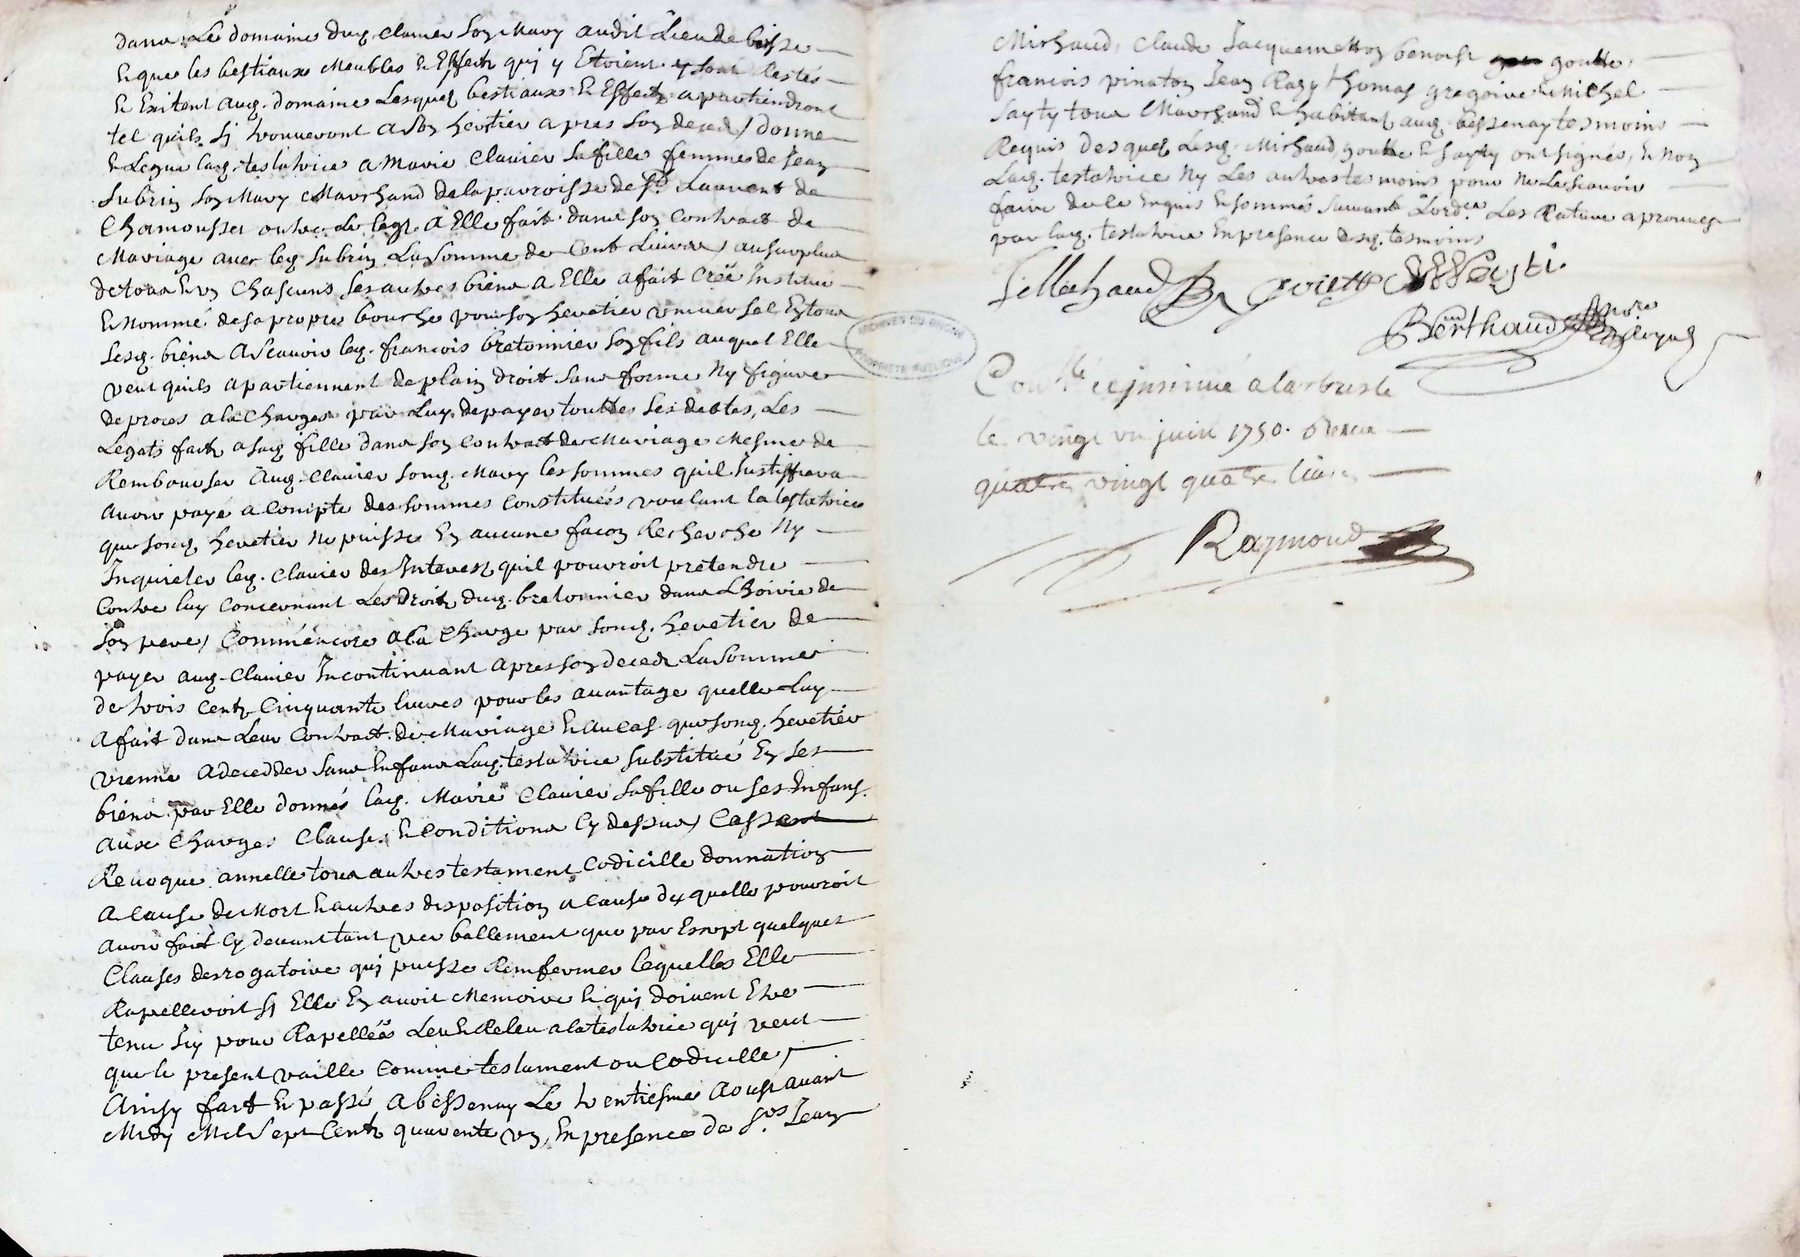 dans Le domaine dud. clavier son Mary audit Lieu de bisse
Et que les bestiaux Meubles & Effects quj y Etoient y sont Restés
& Existent aud. domaine Lesquels bestiaux & Effects apartiendront
tel quils sj trouveront a son heritier apres son deced / donne
& Legue lad. testatrice a Marie Clavier sa fille femme de Jean
Subrin son Mary Marchand de la parroisse de St Laurent de
Chamousset outre le legs a Elle fait dans son Contract de
Mariage avec led. Subrin La somme de Cent Livres / au surplus
de tous & un Chascuns ses autres biens a Elle a fait Créé Institué
& Nommé de sa propre bouche pour son heretier universel En tous
sesd. biens a Scavoir led. francois bretonnier son fils auquel Elle
veut quils apartiennent de plain droit sans forme Ny figure
de proces a la Charge par Luy de payer touttes ses debtes, Les
Legats faits a sad. fille dans son Contract de Mariage Mesme de
Rembourser Aud. Clavier sond. Mary les sommes quil Justiffira
avoir payé a Compte des sommes Constituées voulant la testatrice
que sond. heretier Ne puisse En aucune facon Recherche Ny
Inquieter led. Clavier des Interest quil pouvroit pretendre
Contre luy Concernant Les droits dud. bretonnier dans Lhoirie de
son pere / Comme encore a la Charge par sond. heretier de
payer aud. Clavier Incontinant apres son deced La somme
de trois Cents Cinquante livres pour les avantage quelle Luy
a fait dans Leur Contract de Mariage & au Cas que sond. heretier
vienne a deceder sans Enfans Lad. testatrice substitué En ses
biens par Elle donnés lad. Marie Clavier sa fille ou ses Enfans
aux Charges Clauses & Conditions Cy dessus / Cassant
Revoque annelle tous autres testament Codicille donnation
a Cause de Mort & autres disposition a Cause dy quelle pouvroit
avoir fait Cy devant tant verballement que par Escript quelques
Clauses desrogatoire quj puisse Remfermer lequelles Elle
Rapelleroit sj Elle En avoit Memoire & quj doivent Etre
tenu Jcy pour Rapellées Leu & Releu a la testatrice quj veut
que le present vaille Comme testament ou Codicille /
Ainsy fait & passé a bessenay Le trentiesme Aoust avant
Midy Mil Sept Cents quarente un, En presence de Srs Jean
Michaud, Claude Jacquemetton benoist goutte
francois pinaton Jean Razy thomas gregoire & Michel
sayty tous Marchand & habitant aud. bessenay tesmoins
Requis desquels Lesd. Michaud goutte & sayty ont signés, & Non
Lad. testatrice Ny Les autres tesmoins pour Ne Le Scavoir
faire de le Enquis & sommé suivant L'ord.ce Les Rature aprouvés
par lad. testatrice En presence desd. tesmoins
Berthaud No.re Royal
Con.llé et insinué a larbresle
le vingt un juin 1750. Receu
quatre vingt quatre livres
Raymond
ARCHIVES DU RHONE
PROPRIETE PUBLIQUE